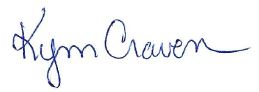 Kym Craven